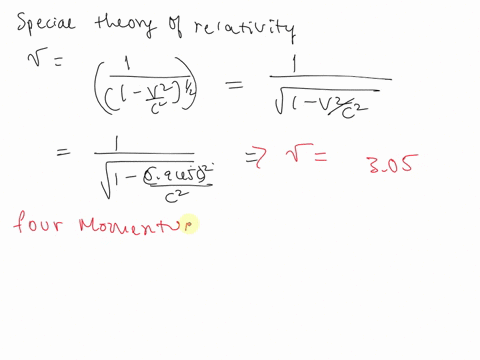 Special theory of relativity
γ = 1/((1 - V²/c²)^½) = 1/√(1 - V²/c²)
= 1/√(1 - (0.945c)²/c²) ⇒ γ = 3.05
four Momentu